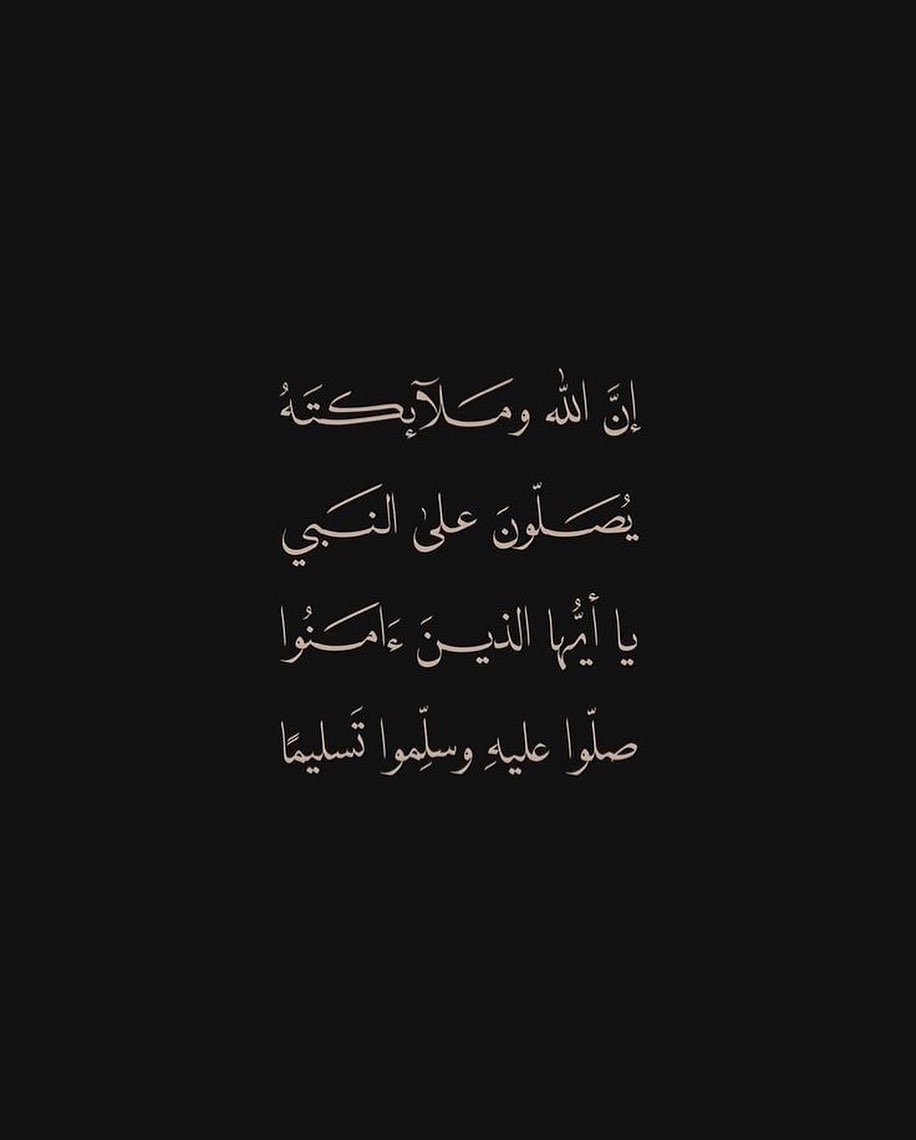 إنَّ اللّٰه ومَلآئِكتَهُ
يُصَلّونَ علىٰ النبَي
يا أيُّها الذينَ ءَامَنُوا
صلّوا عليهِ وسلِّموا تَسليمًا